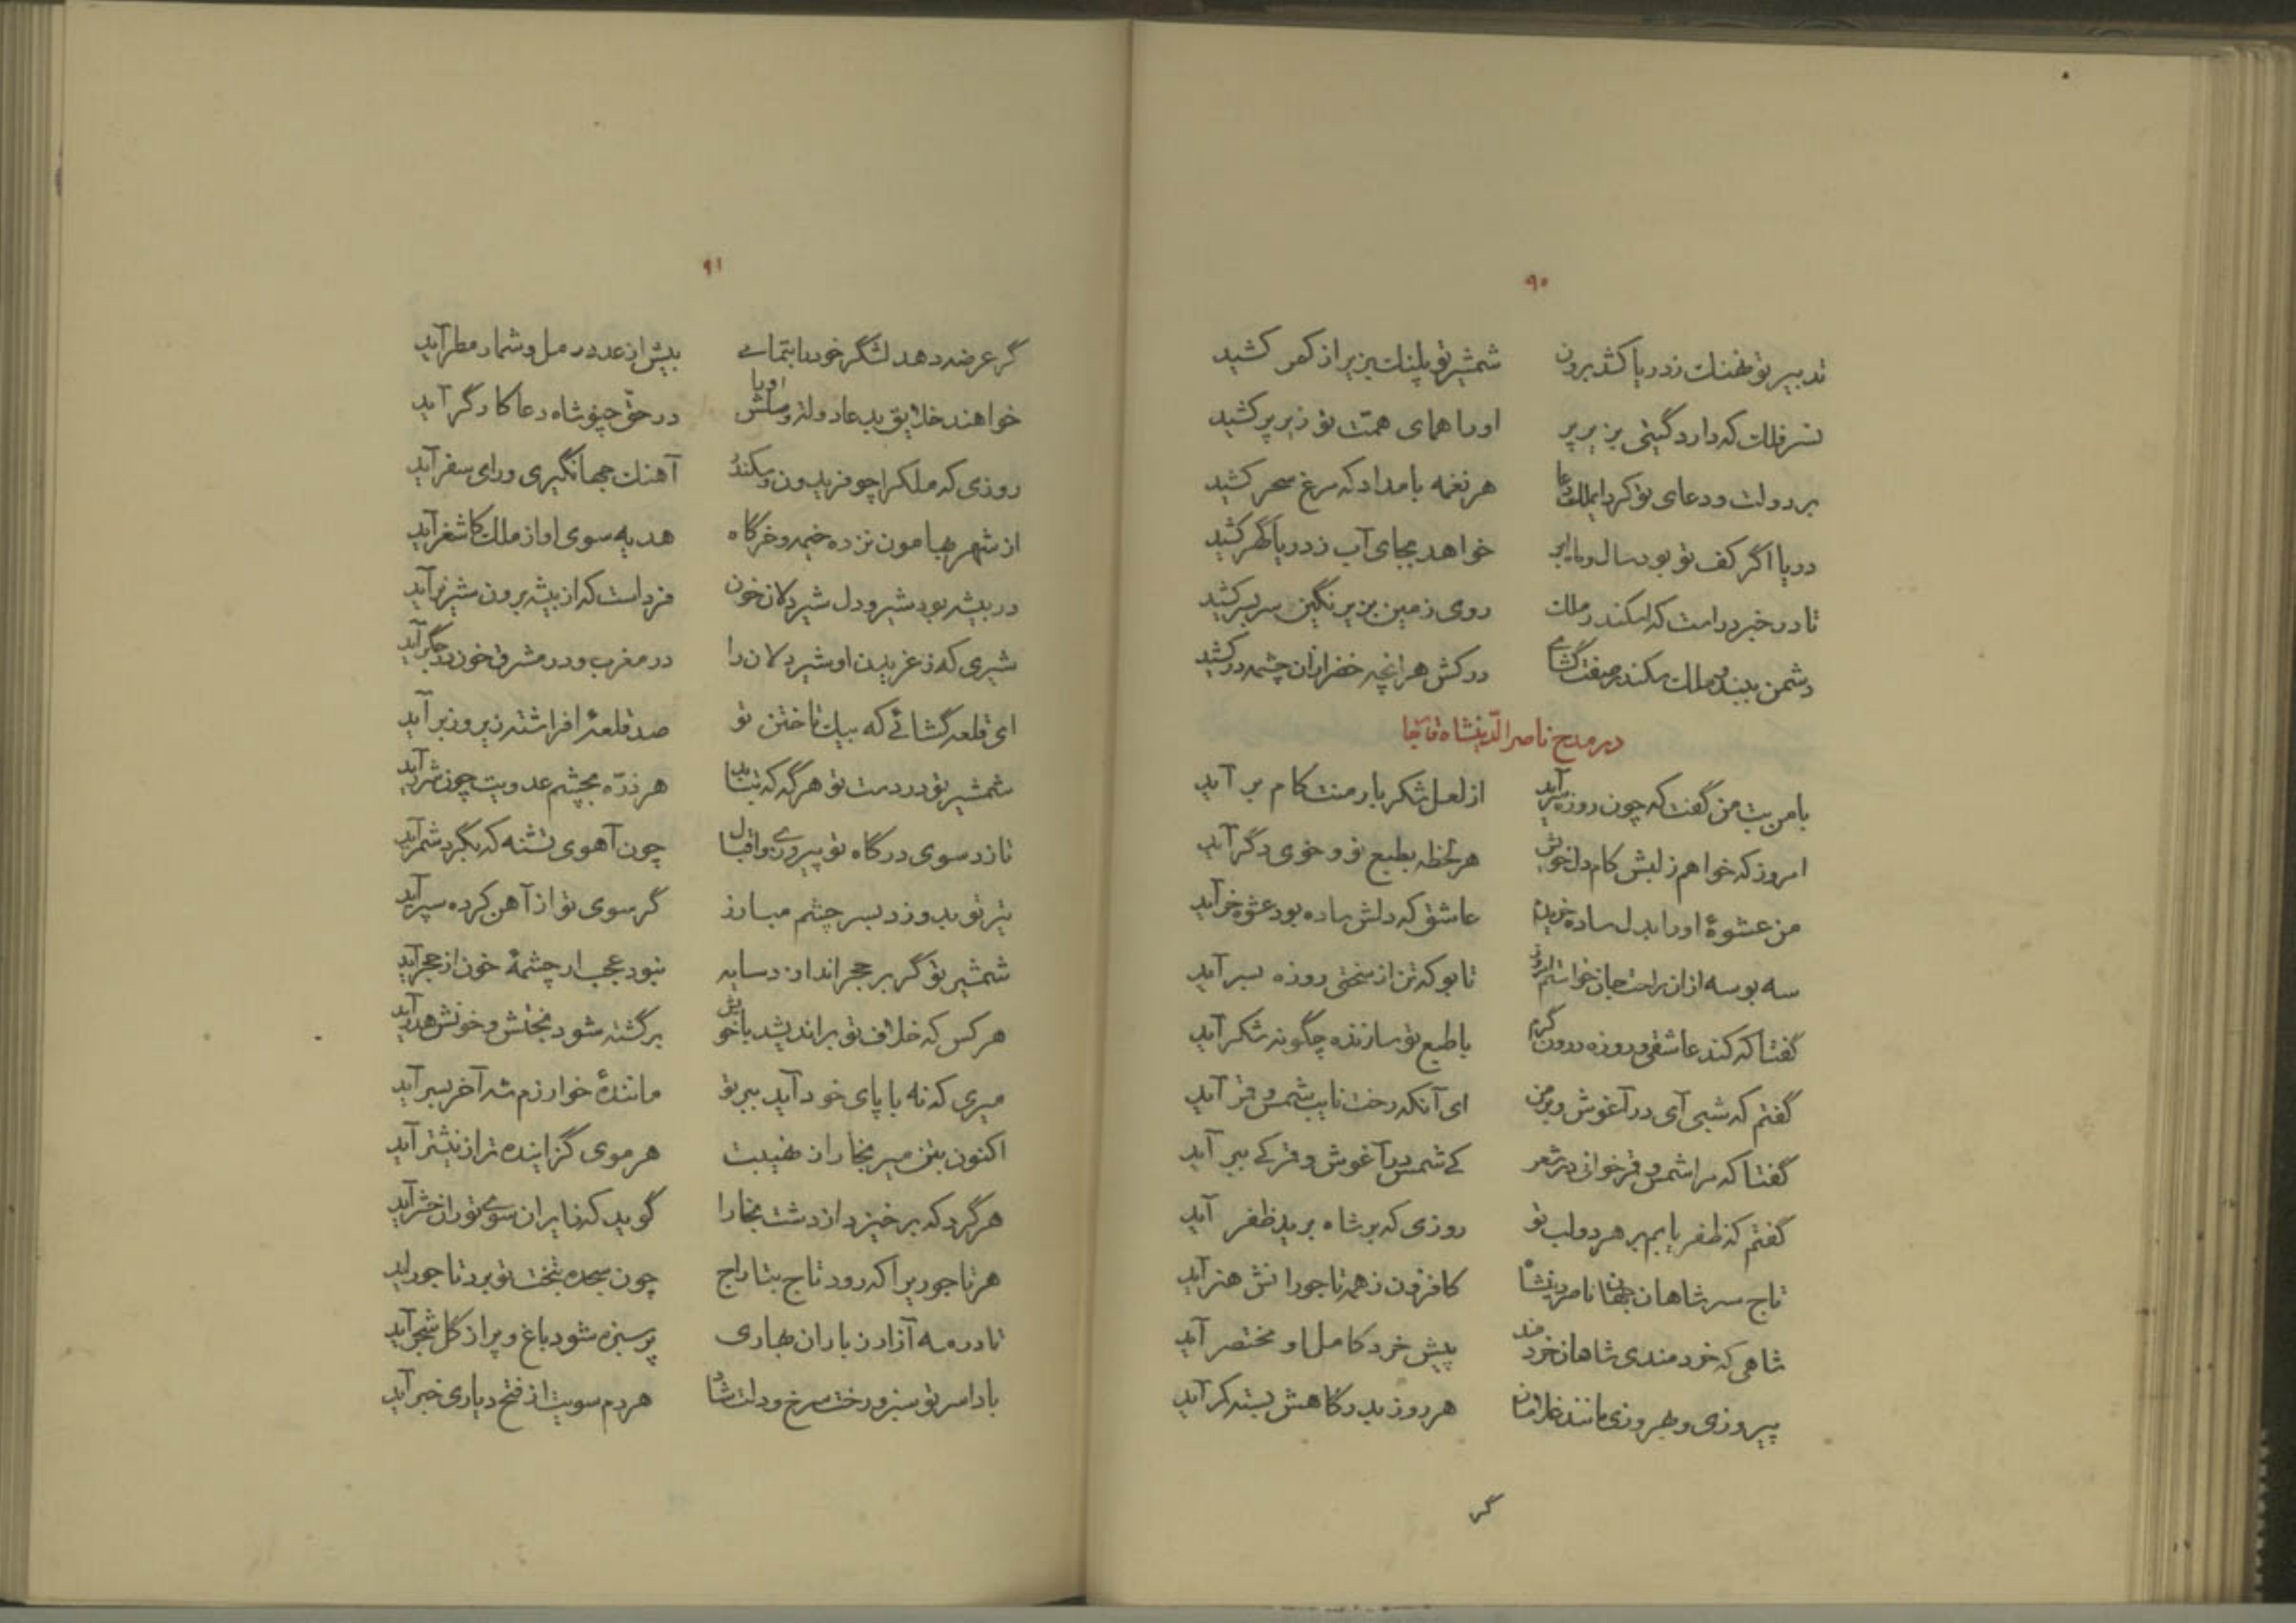 ۹۰
تدبیر تو نهنک ز دریا کشد برون شمشیر تو پلنک بزیر از کمر کشید
نسر فلک که دارد گیتی بزیر پر او را همای همّت تو زیر پر کشید
بر دولت و دعای تو کرد ای ملک دعا هر نغمه بامداد که مرغ سحر کشید
دریا اگر کف تو بود سال و ماه ابر خواهد بجای آب ز دریا گهر کشید
تا در خبر درست که اسکندر ملک روی زمین بزیر نگین سربسر کشید
دشمن ببند و ملک سکندر صفت گشای درکش هر انچه خضر ازان چشمه درکشید
در مدح ناصر الدّینشاه قاجار
با من بت من گفت که چون روزه سرآید از لعل شکربار منت کام بر آید
امروز که خواهم ز لبش کام دل خویش هر لحظه بطبع نو و خوی دگر آید
من عشوهٔ او را بدل ساده خریدم عاشق که دلش ساده بود عشوه خرآید
سه بوسه ازان راحت جان خواستم امروز تا بو که تن از سختی روزه بسر آید
گفتا که کند عاشقی و روزه درون گرم با طبع تو سازنده چگونه شکر آید
گفتم که شبی آی در آغوش و بر من ای آنکه رخت نایب شمس و قمر آید
گفتا که مرا شمس و قمر خوانی در شعر کے شمس در آغوش و قمر کے ببر آید
گفتم که ظفر یابم بر هر دو لب تو روزی که بر شاه برید ظفر آید
تاج سر شاهان جهان ناصر دینشاه کافزون ز همه تاجورانش هنر آید
شاهی که خردمندی شاهان خردمند پیش خرد کامل او مختصر آید
پیروزی و بهروزی مانند غلامان هر روز بدرگاهش بسته کمر آید
گر
۹۱
گر عرضه دهد لشگر خود را بتمامے بیش از عدد رمل و شمار مطر آید
خواهند خلایق بدعا دولت و سالش او را در حقّ چنو شاه دعا کارگر آید
روزی که ملکرا چو فریدون و سکندر آهنک جهانگیری و رای سفر آید
از شهر بهامون نزده خیمه و خرگاه هدیه سوی او از ملک کاشغر آید
در بیشه بود شیر و دل شیردلان خون فرداست که از بیشه برون شیر نر آید
شیری که ز غریدن او شیردلان را در مغرب و در مشرق خون در جگر آید
ای قلعه گشائے که بیک تاختن تو صد قلعهٔ افراشته زیر و زبر آید
شمشیر تو در دست تو هرگه که بتابد هر ذرّه بچشم عدویت چون شرر آید
تازد سوی درگاه تو پیروزے و اقبال چون آهوی تشنه که بگرد شمر آید
تیر تو بدوزد بسر چشم مبارز گر سوی تو از آهن کرده سپر آید
شمشیر تو گر بر حجر اندازد سایه نبود عجب ار چشمهٔ خون از حجر آید
هر کس که خلاف تو براندیشد با خویش برگشته شود بختش و خونش هدر آید
میری که نه با پای خود آید ببر تو مانندهٔ خوارزم شه آخر بسر آید
اکنون بتن میر بخارا ز نهیبت هر موی گزاینده تر از نیشتر آید
هر گرد که برخیزد از دشت بخارا گوید که ز ایران سوے توران حشر آید
هر تاجوریرا که رود تاج بتاراج چون سجده بتخت تو برد تاجور آید
تا در مه آزار ز باران بهاری پر سبزه شود باغ و پر از گل شجر آید
بادا سر تو سبز و رخت سرخ و دلت شاد هر دم سویت از فتح دیاری خبر آید